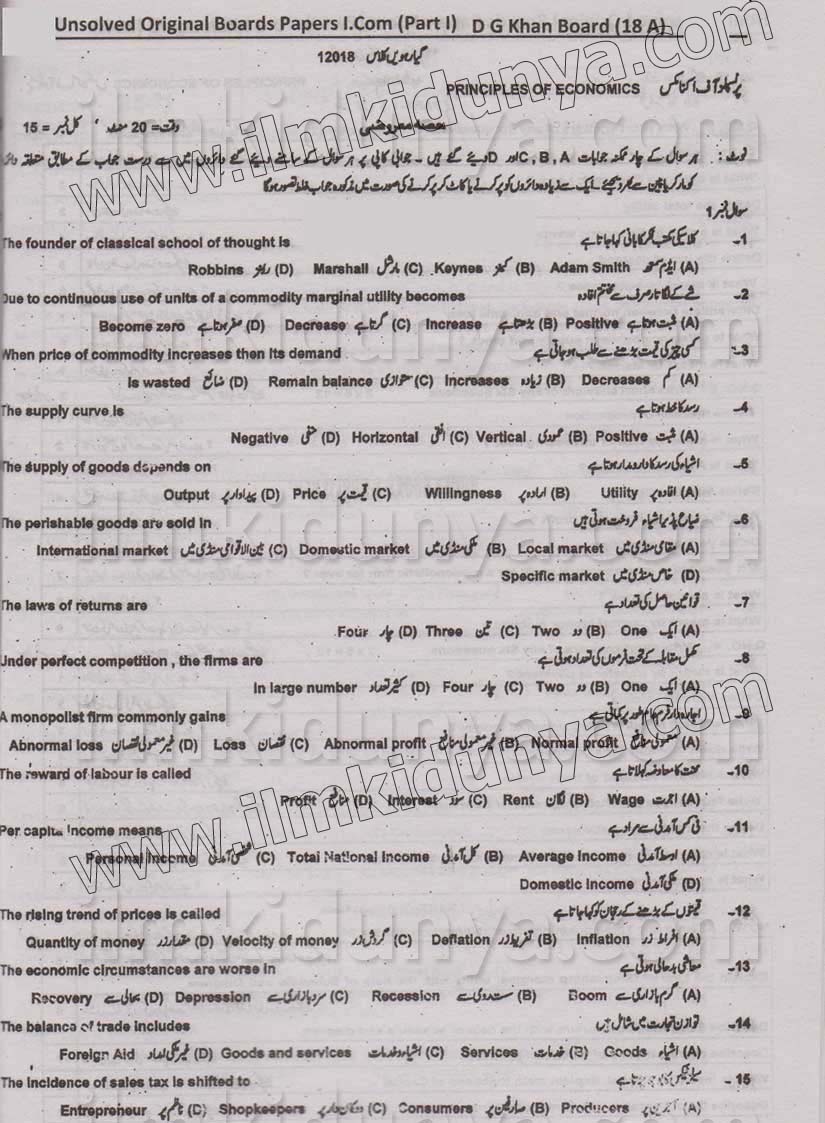 Unsolved Original Boards Papers I.Com (Part I) D G Khan Board (18 A)
گیارہویں کلاس 12018
PRINCIPLES OF ECONOMICS پرنسپلز آف اکنامکس
وقت= 20 منٹ ، کل نمبر = 15 حصہ معروضی
نوٹ : ہر سوال کے چار ممکنہ جوابات C , B , A اور D دیئے گئے ہیں ۔ جوابی کاپی پر ہر سوال کے سامنے دیئے گئے دائروں میں سے درست جواب کے مطابق متعلقہ
کو مارکر یا پین سے بھر دیجئے ۔ ایک سے زیادہ دائروں کو پر کرنے یا کاٹ کر پر کرنے کی صورت میں مذکورہ جواب غلط تصور ہوگا
سوال نمبر 1
The founder of classical school of thought is کلاسیکی مکتب فکر کا بانی کہا جاتا ہے 1-
Robbins رابنز (D) Marshall مارشل (C) Keynes کینز (B) Adam Smith ایڈم سمتھ (A)
Due to continuous use of units of a commodity marginal utility becomes شے کے لگاتار صرف سے مختتم افادہ 2-
Become zero صفر ہوتا ہے (D) Decrease گرتا ہے (C) Increase بڑھتا ہے (B) Positive مثبت ہوتا ہے (A)
When price of commodity increases then its demand کسی چیز کی قیمت بڑھنے سے طلب ہو جاتی ہے 3-
Is wasted ضائع (D) Remain balance متوازی (C) Increases زیادہ (B) Decreases کم (A)
The supply curve is رسد کا خط ہوتا ہے 4-
Negative منفی (D) Horizontal افقی (C) Vertical عمودی (B) Positive مثبت (A)
The supply of goods depends on اشیاء کی رسد کا دارومدار ہوتا ہے 5-
Output پیداوار پر (D) Price قیمت پر (C) Willingness ارادہ پر (B) Utility افادہ پر (A)
The perishable goods are sold in ضیاع پذیر اشیاء فروخت ہوتی ہیں 6-
International market بین الاقوامی منڈی میں (C) Domestic market ملکی منڈی میں (B) Local market مقامی منڈی میں (A)
Specific market خاص منڈی میں (D)
The laws of returns are قوانین حاصل کی تعداد ہے 7-
Four چار (D) Three تین (C) Two دو (B) One ایک (A)
Under perfect competition , the firms are مکمل مقابلہ کے تحت فرموں کی تعداد ہوتی ہے 8-
In large number کثیر تعداد (D) Four چار (C) Two دو (B) One ایک (A)
A monopolist firm commonly gains اجارہ دار فرم عام طور پر کماتی ہے 9-
Abnormal loss غیر معمولی نقصان (D) Loss نقصان (C) Abnormal profit غیر معمولی منافع (B) Normal profit معمولی منافع (A)
The reward of labour is called محنت کا معاوضہ کہلاتا ہے 10-
Profit منافع (D) Interest سود (C) Rent لگان (B) Wage اجرت (A)
Per capita Income means فی کس آمدنی سے مراد ہے 11-
Personal Income شخصی آمدنی (C) Total National Income کل آمدنی (B) Average Income اوسط آمدنی (A)
Domestic Income ملکی آمدنی (D)
The rising trend of prices is called قیمتوں کے بڑھنے کے رجحان کو کہا جاتا ہے 12-
Quantity of money مقدار زر (D) Velocity of money گردش زر (C) Deflation تفریط زر (B) Inflation افراط زر (A)
The economic circumstances are worse in معاشی بدحالی ہوتی ہے 13-
Recovery بحالی سے (D) Depression سرد بازاری سے (C) Recession سست روی سے (B) Boom گرم بازاری سے (A)
The balance of trade includes توازن تجارت میں شامل ہیں 14-
Foreign Aid غیر ملکی امداد (D) Goods and services اشیاء و خدمات (C) Services خدمات (B) Goods اشیاء (A)
The incidence of sales tax is shifted to سیلز ٹیکس ہوتا ہے 15-
Entrepreneur ناظم پر (D) Shopkeepers دوکان دار پر (C) Consumers صارفین پر (B) Producers (A)
www.ilmkidunya.com
www.ilmkidunya.com
www.ilmkidunya.com